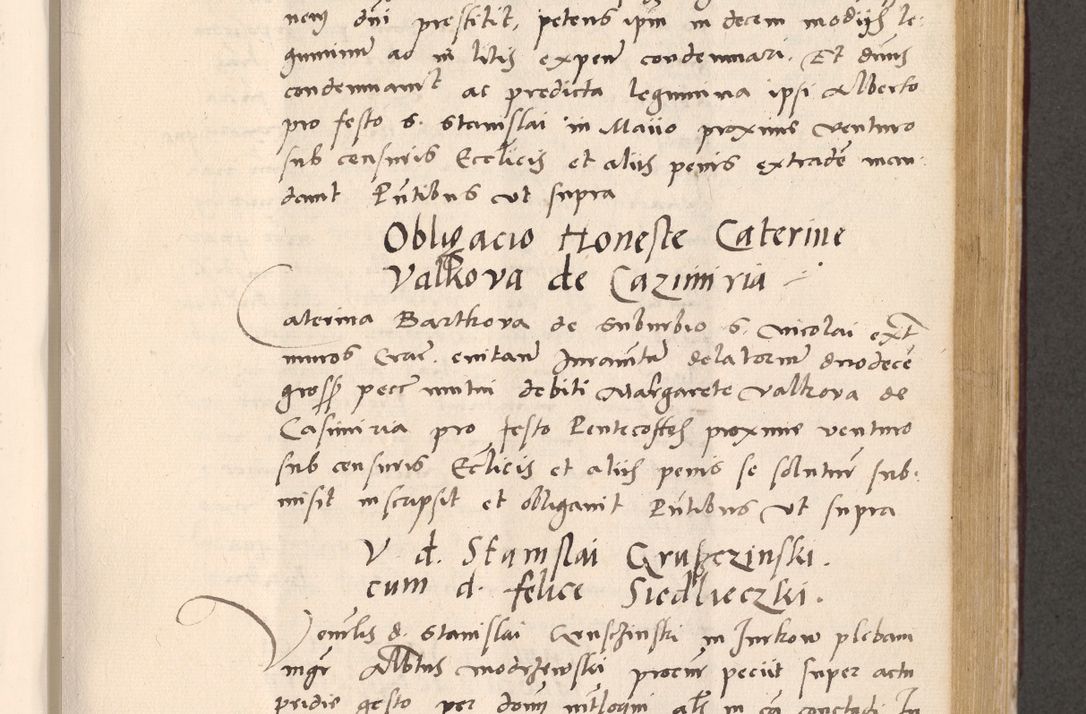 nem dni prestitit, petens ipm in decem modijs le-
guminum ac in litis expen condemnari. Et dnus
condemnavit ac predicta legumina ipsi Alberto
pro festo S. Stanislai in Maiio proxime venturo
sub censuris Ecclicis et aliis penis extradere man-
davit Pntibus ut supra
Obligacio Honeste Caterine
Valkova de Cazimiria
Caterina Bartkova de suburbio S. Nicolai extr
muros Crac. evitan Juramtum delatorum duodecem
gross pecc mutui debiti Margarete Valkova de
Casimiria pro festo Pentecostes proxime venturo
sub censuris Ecclicis et aliis penis se soluturum sub-
misit inscripsit et obligavit Pntibus ut supra
V. d. Stanislai Gruszinski.
cum d. felice Siedlieczki.
Venerlis d. Stanislai Gruschinski in Jurkow plebani
mgr Albtus Modrzewski procur peciit super actu
pridie gesto per dom in ca conclodi In